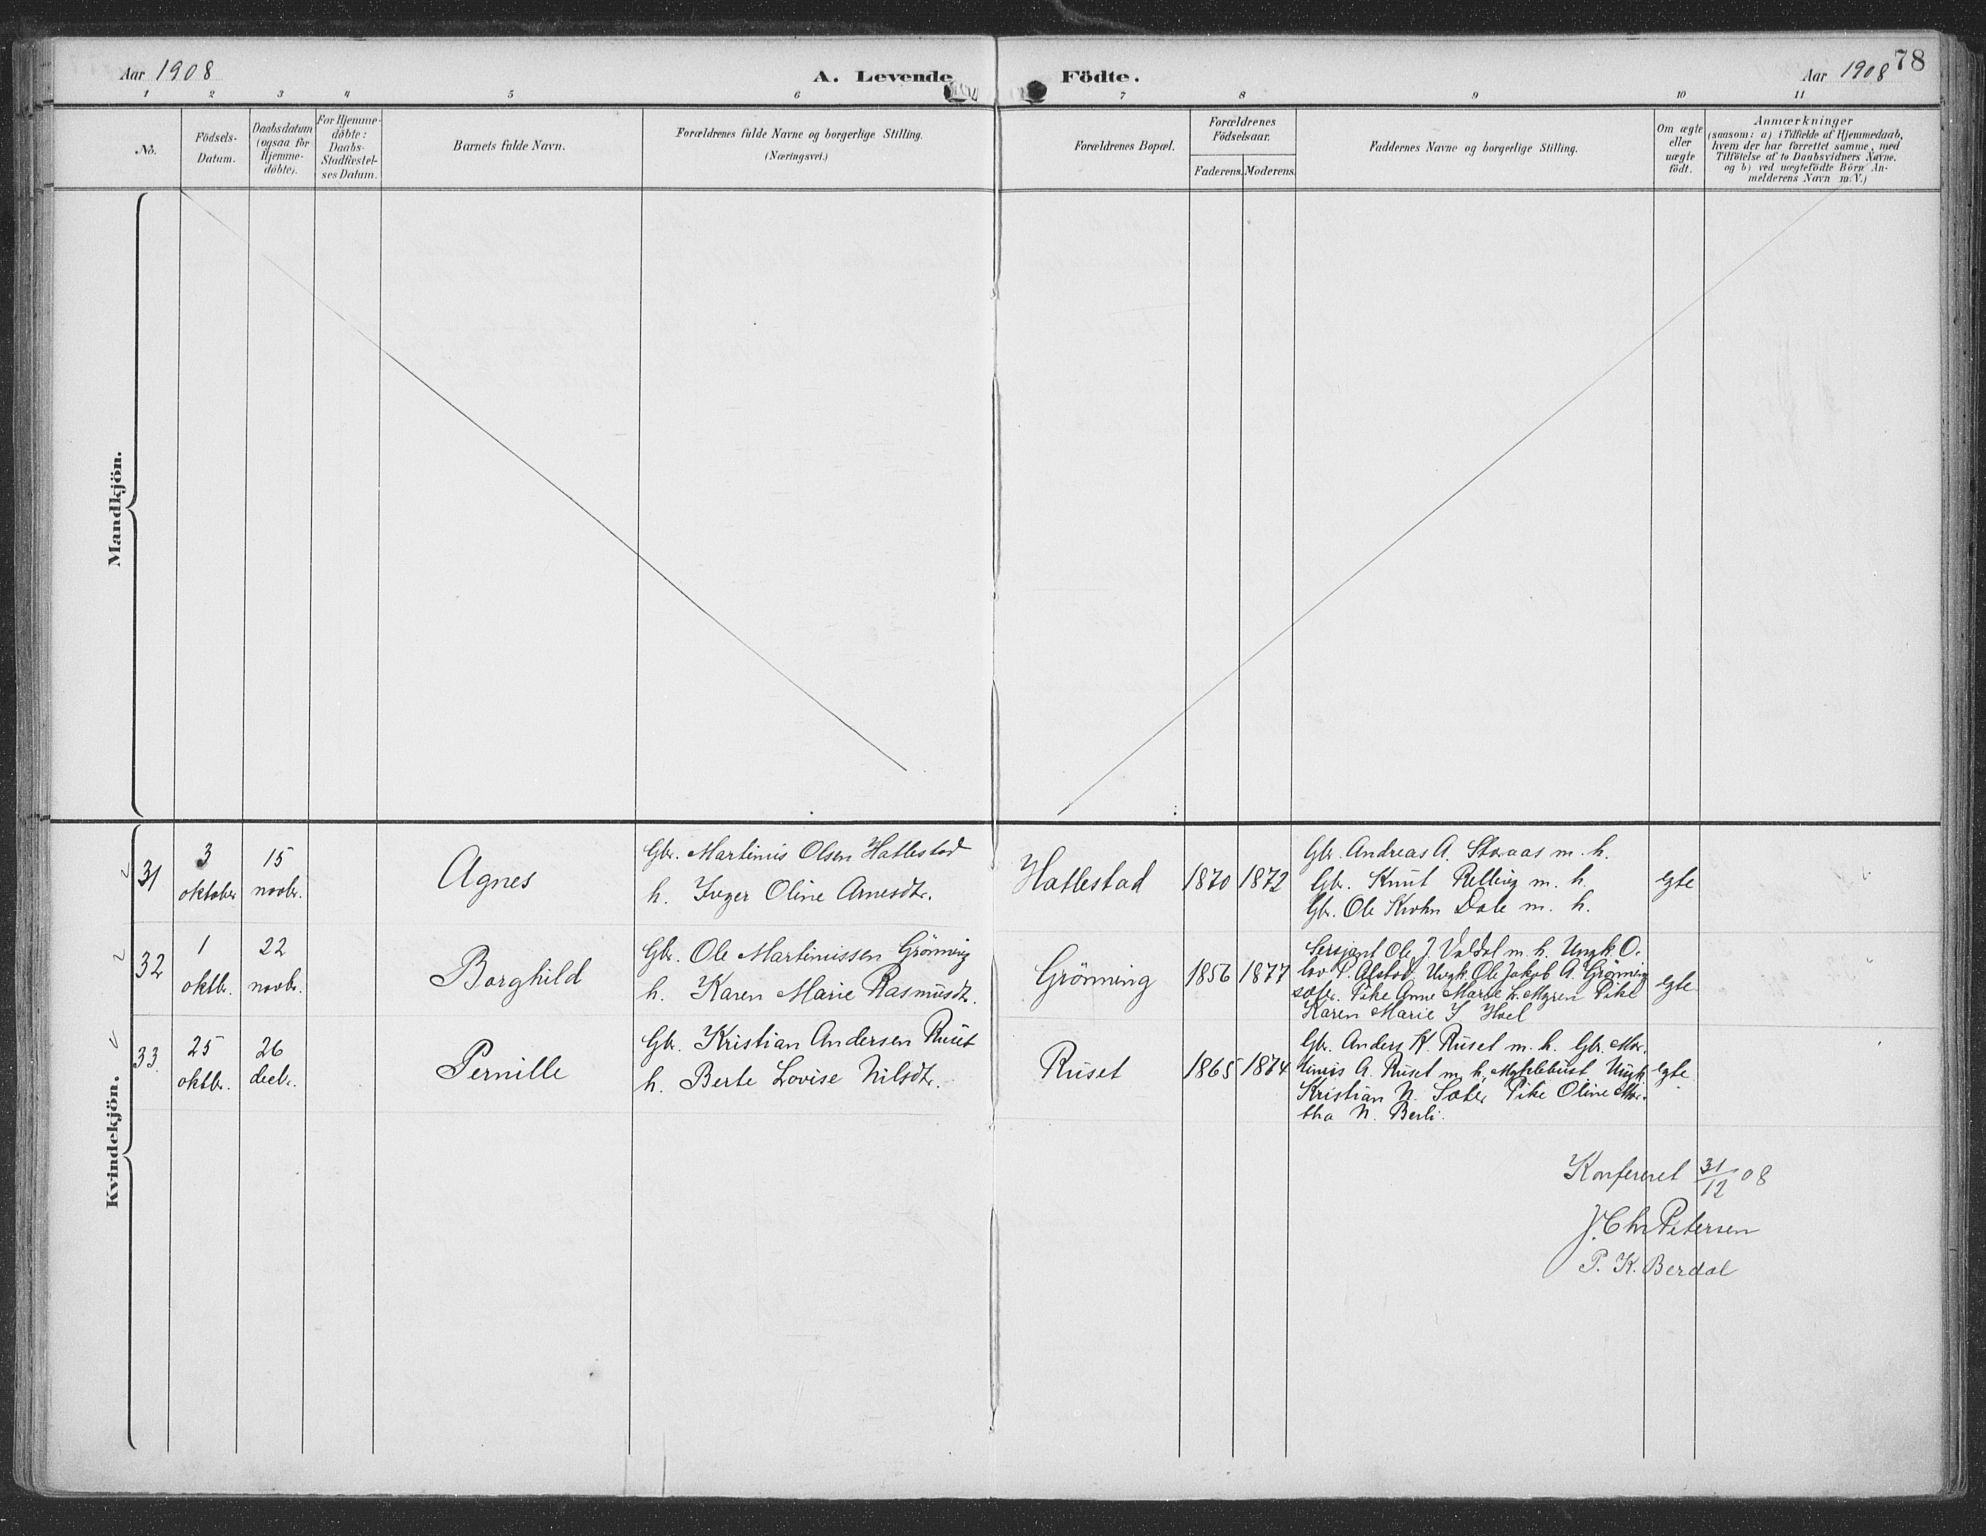 Aar 1908
A. Levende Födte.
Aar 1908
78
1 2 3 4 5 6 7 8 9 10 11
No.
Födsels-
Datum.
Daabsdatum
(ogsaa for
Hjemme-
døbte).
For Hjemme-
døbte:
Daabs-
Stadfæstel-
ses Datum.
Barnets fulde Navn.
Forældrenes fulde Navne og borgerlige Stilling.
(Næringsvei.)
Forældrenes Bopæl.
Forældrenes
Födselsaar.
Faderens. Moderens.
Faddernes Navne og borgerlige Stilling.
Om ægte
eller
uægte
födt.
Anmærkninger
(saasom: a) i Tilfælde af Hjemmedaab,
hvem der har forrettet samme, med
Tilföielse af to Daabsvidners Navne.
og b) ved uægtefödte Börn An-
melderens Navn m. V.)
Mandkjön.
Kvindekjön.
31
3
oktober
15
novbr.
Agnes
Gbr. Martinus Olsen Hatlestad
h. Inger Oline Arnesdtr.
Hatlestad
1870
1872
Gbr. Andreas A. Storaas m. h.
Gbr. Knut Relling m. h.
Gbr. Ole Krohn Dale m. h.
egte
32
1
oktbr.
22
novbr.
Borghild
Gbr. Ole Martinussen Grönning
h. Karen Marie Rasmusdtr.
Grönning
1856
1877
Sersjant Ole J. Valdal m. h. Ungk. O-
lav P. Alstad. Ungk. Ole Jakob A. Grönning
sæter. Pike Anne Marie L. Myren Pike
Karen Marie I. Hoel
egte
33
25
oktbr.
26
decbr.
Pernille
Gbr. Kristian Andersen Ruset
h. Berte Lovise Nilsdtr.
Ruset
1865
1874
Gbr. Anders K. Ruset m. h. Gbr. Mar-
tinus A. Ruset m. h. Myklebust Ungk.
Kristian N. Sæter Pike Oline Mar-
tha N. Berli.
egte
Konfereret 31/12 08
J. Chr Petersen
P. K. Berdal